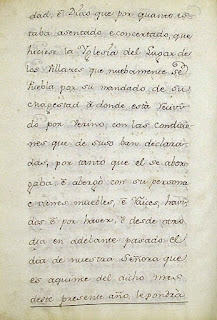 dad, è Dixo que por quanto es
taba asentado è concertado, que
hiciese la Yglesia del Lugar de
los Villares que nuebamente se
Puebla por su mandado de su
Magestad à donde està
do por Vecino, con las condicio
nes que de suso ban declara
das, por tanto que el se obor
gaba, è oborgò con su persona
è vienes muebles, è Raices, havi
dos è por haver, è desde otro
dia en adelante pasado el
dia de nuestra Señora que
es aquinze del dicho mes
deste presente año, le pondrà